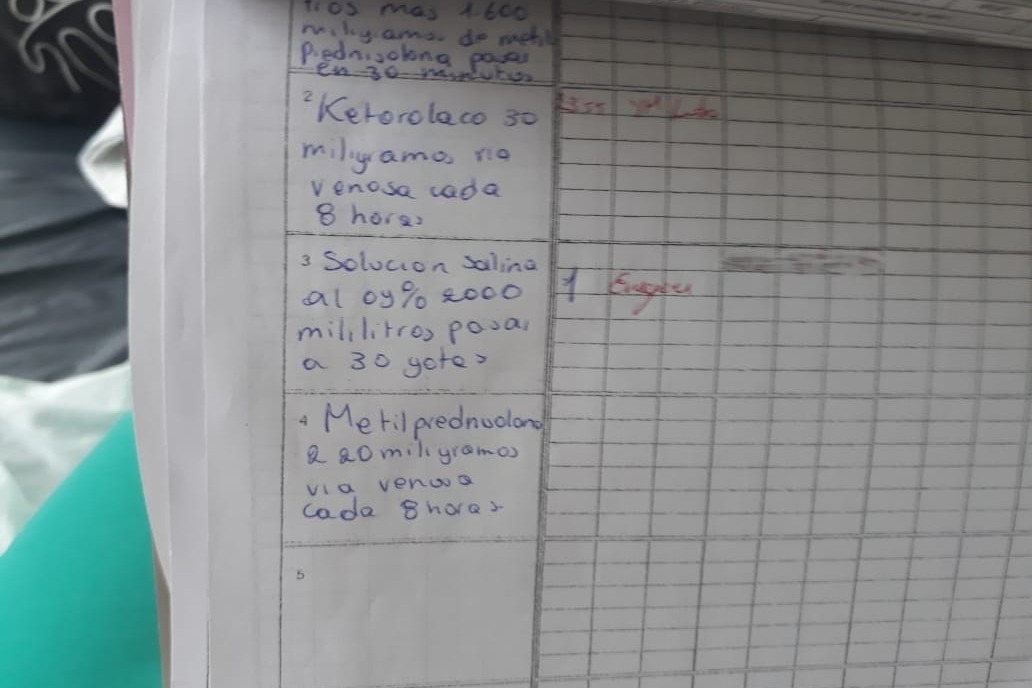 tros mas 1.600
miligramos de metil
Prednisolona pasar
en 30 minutos
2 Ketorolaco 30
miligramos via
venosa cada
8 horas
3 Solucion Salina
al 09% 2000
mililitros pasar
a 30 gotas
1
4 Metilprednisolona
220 miligramos
via venosa
cada 8 horas
5